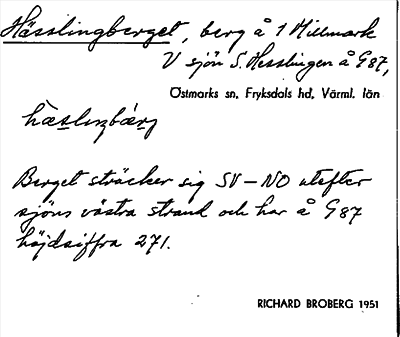 Hässlingberget, berg å 1 Millmark
V sjön S. Hesslingen å G87,
Östmarks sn, Fryksdals hd, Värml. län
hæ̀slıŋbær̨j
Berget sträcker sig SV – NO utefter
sjöns västra strand och har å G87
höjdsiffra 271.
RICHARD BROBERG 1951